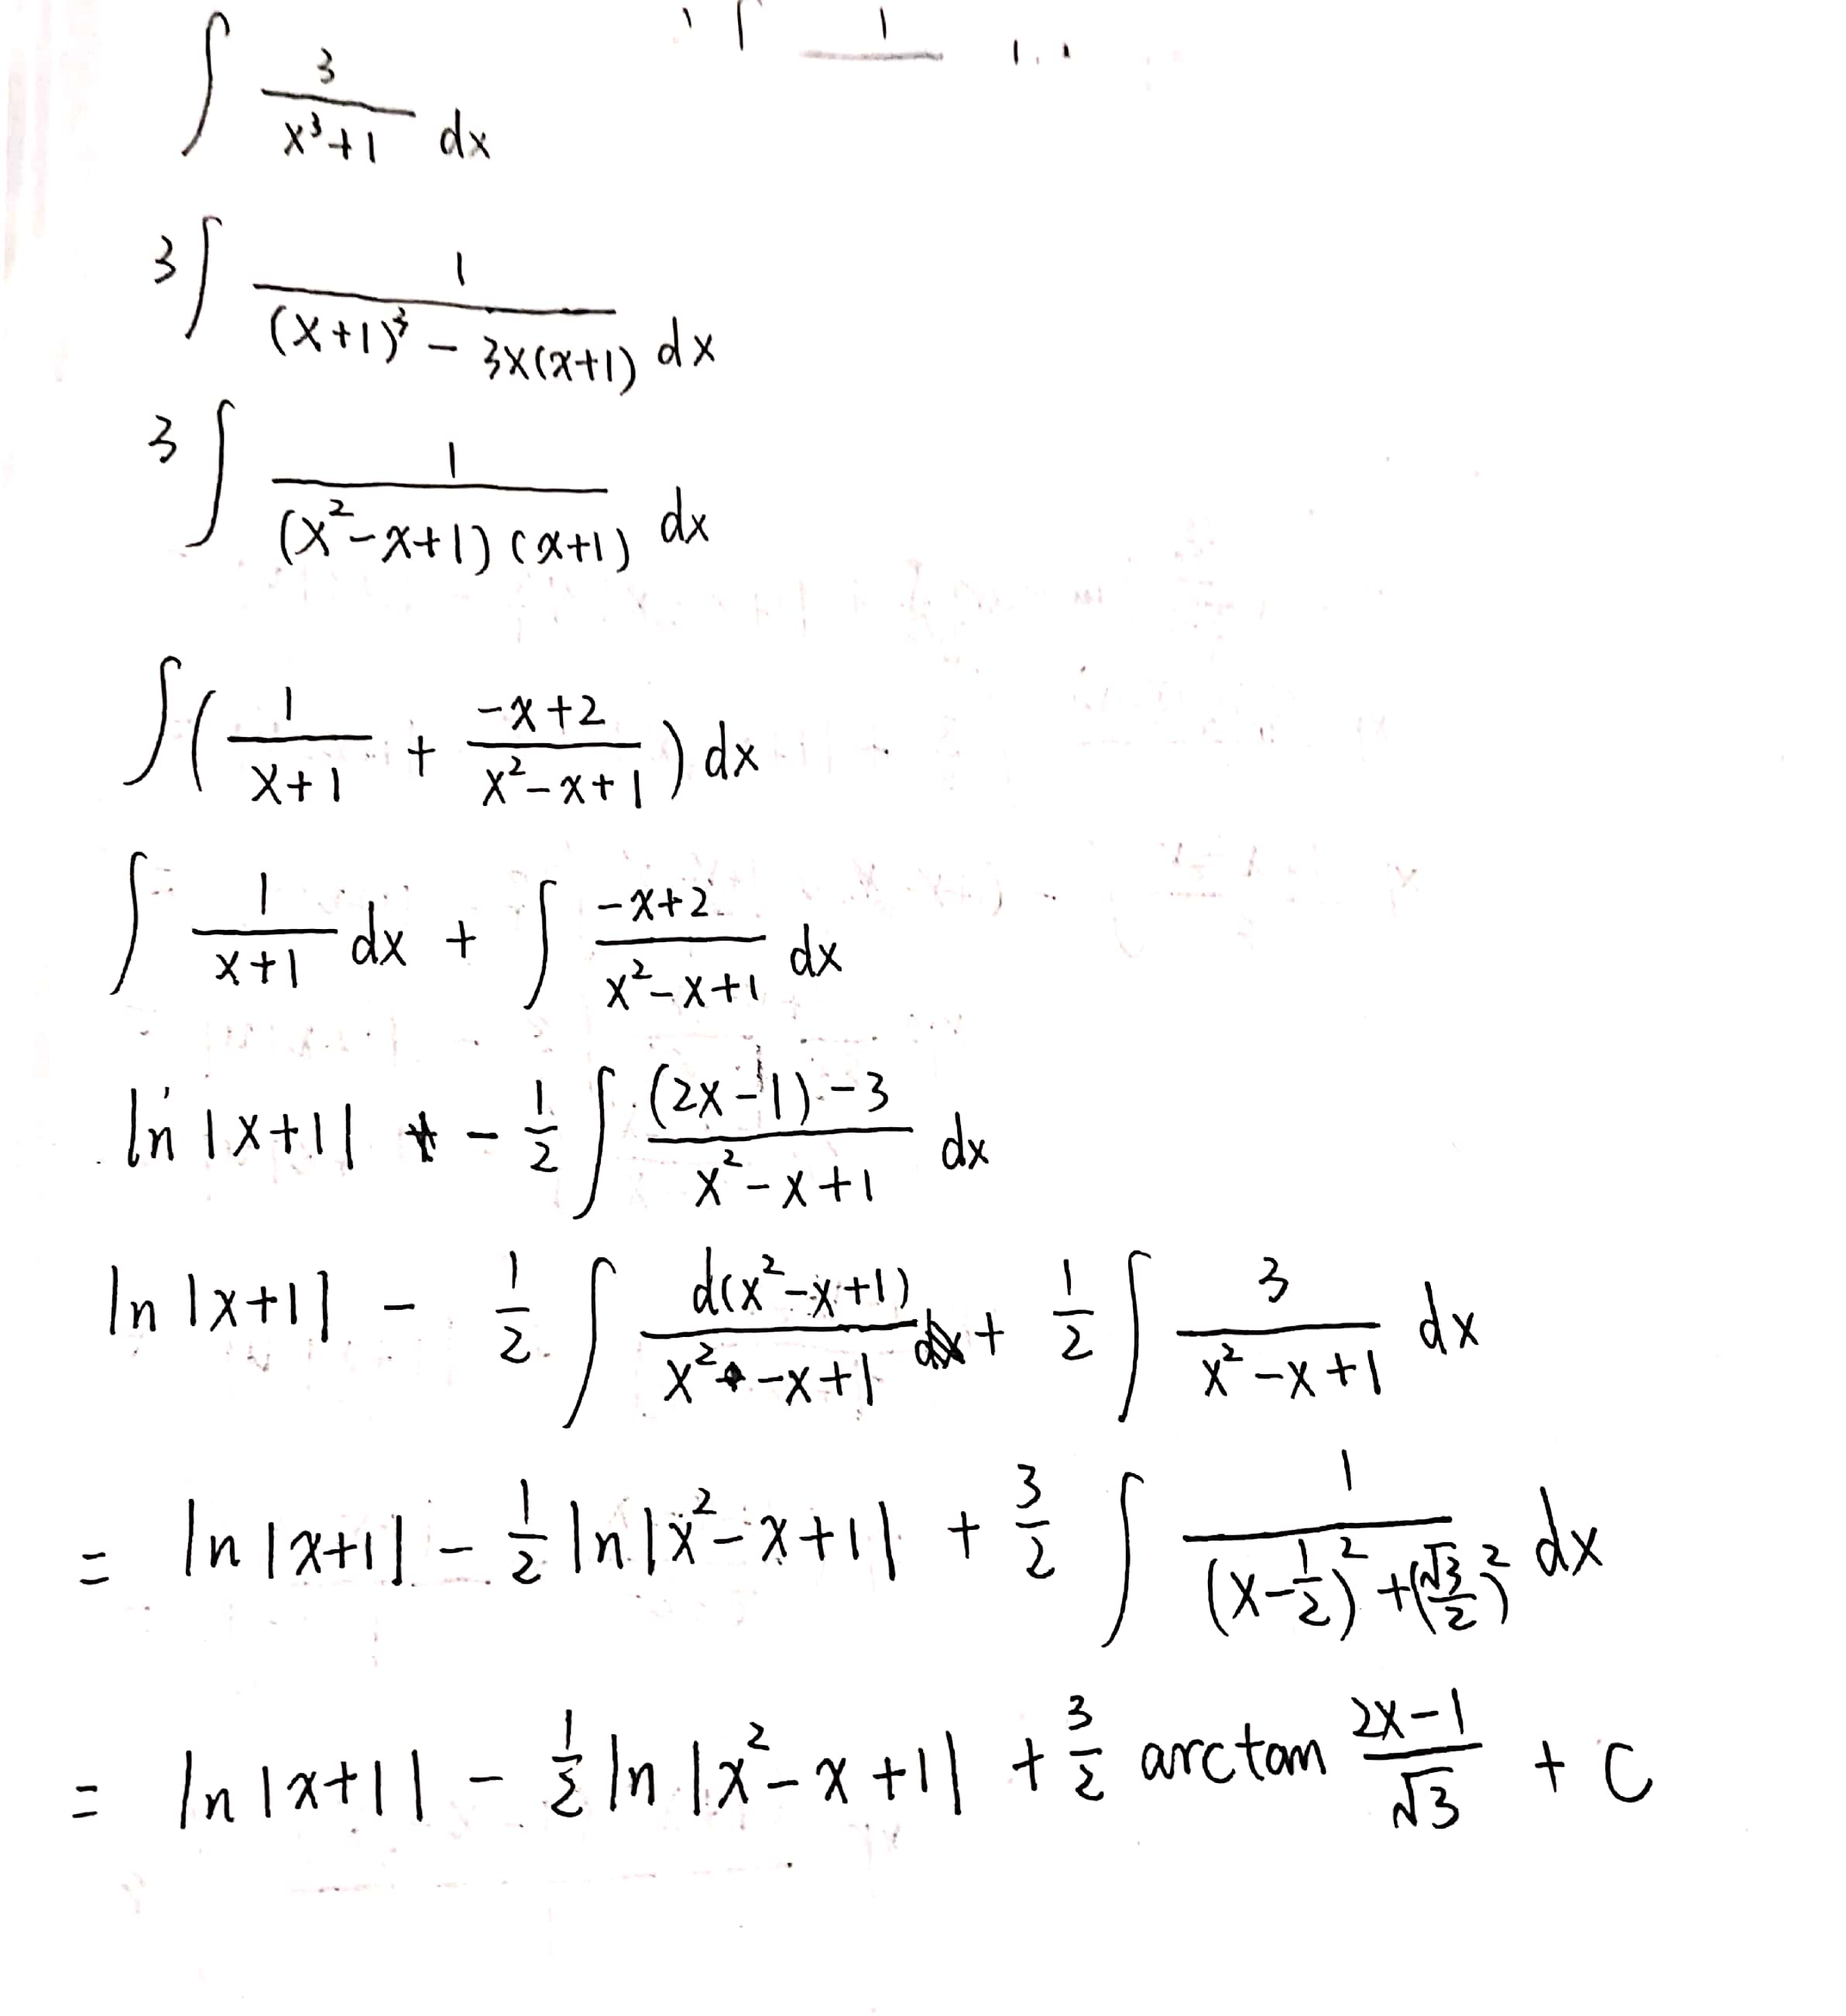 ∫ 3/(x³+1) dx
3∫ 1/((x+1)³ - 3x(x+1)) dx
3∫ 1/((x²-x+1)(x+1)) dx
∫(1/(x+1) + (-x+2)/(x²-x+1)) dx
∫ 1/(x+1) dx + ∫ (-x+2)/(x²-x+1) dx
ln|x+1| - 1/2 ∫ ((2x-1)-3)/(x²-x+1) dx
ln|x+1| - 1/2 ∫ d(x²-x+1)/(x²-x+1) + 1/2 ∫ 3/(x²-x+1) dx
= ln|x+1| - 1/2 ln|x²-x+1| + 3/2 ∫ 1/((x-1/2)²+(√3/2)²) dx
= ln|x+1| - 1/2 ln|x²-x+1| + 3/2 arctan (2x-1)/√3 + C